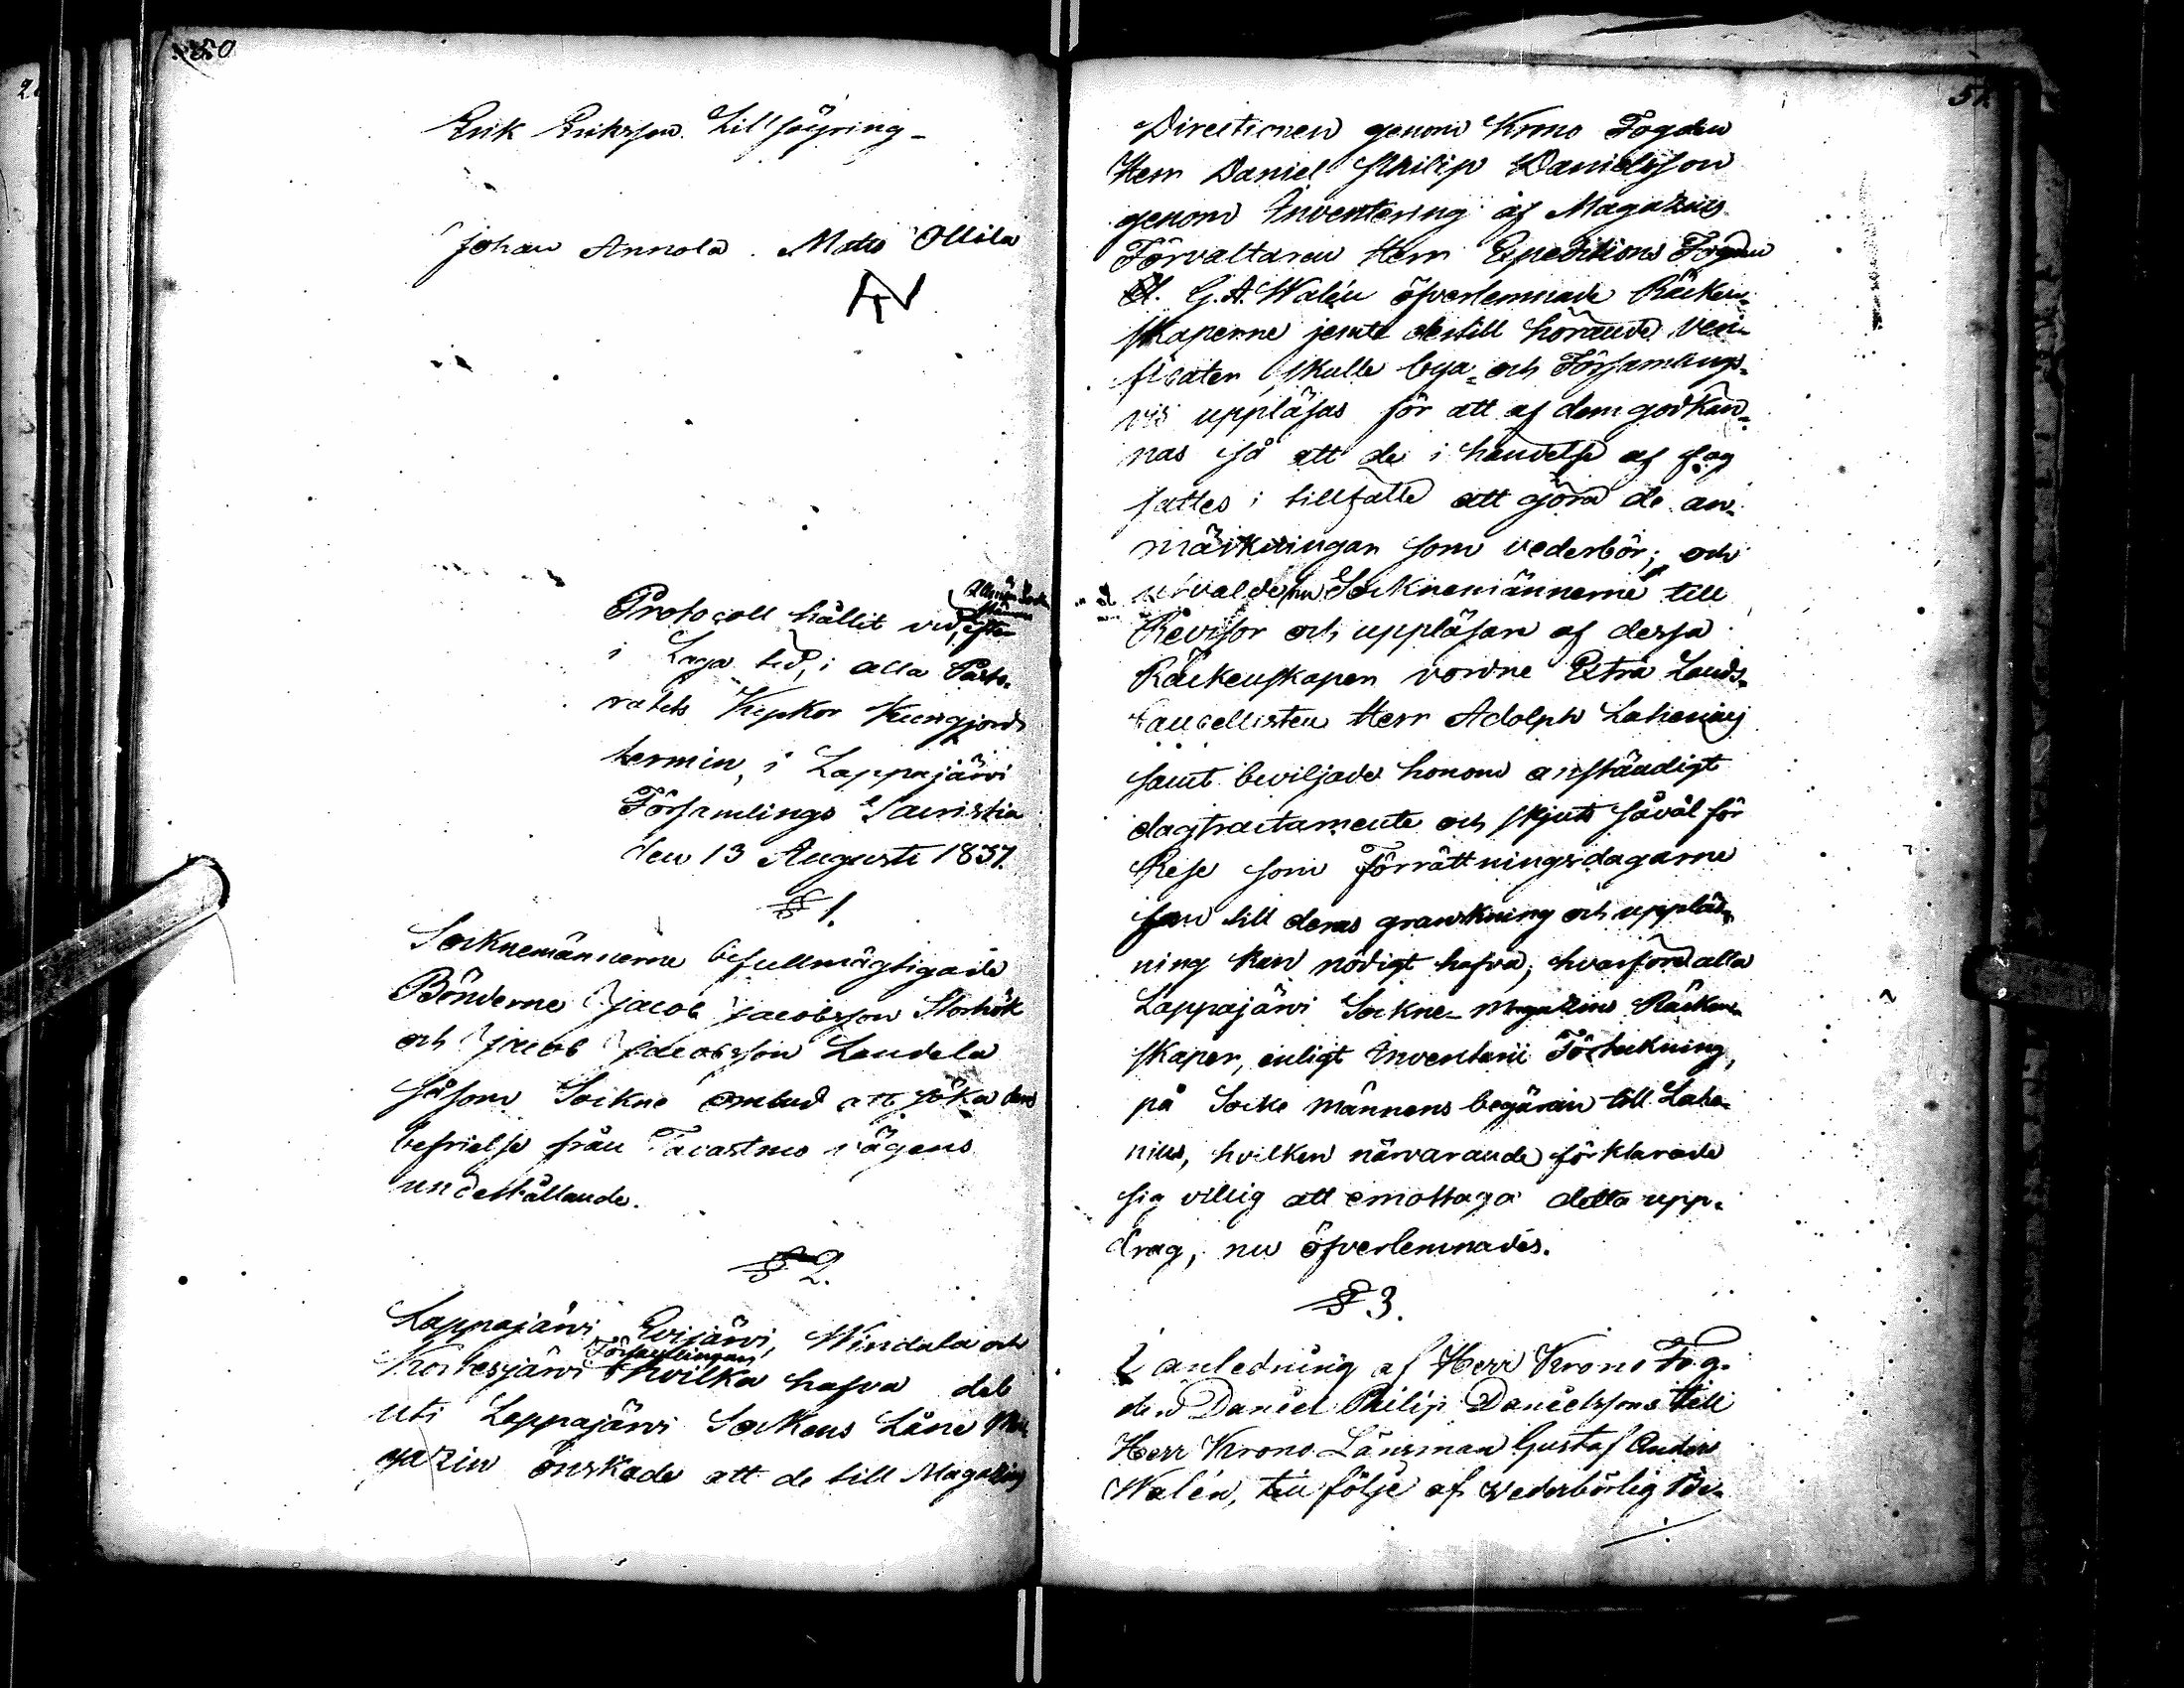 50
Erik Eriksson Lillsöyring
Johan Annola. Matts Ollila
Protocoll hållit vid, efter
i Laga tid, i alla Pasto-
ratets Kyrkor Kungjord
termin, i Lappajärvi
Församlings Sacristia
den 13 Augusti 1837.
§ 1.
Socknemännerne befullmägtigade
Bönderne Jacob Jacobsson Storhök
och Jacob Jacobsson Landela
såsom Sockne ombud att söka dess
befrielse från Tavastmo vägens
underhållande.
§ 2.
Lappajärvi, Evijärvi, Windala och
Församlingar
Kortesjärvi hvilka hafva del
uti Lappajärvi Sockens Låne Ma-
gazin önskade att de till Magazins
51.
Directionen genom Krono Fogden
Herr Daniel Philip Danielsson
genom Inventering af Magazins
Förvaltaren Herr Expeditions Fogden
G. A. Walén öfverlemnade Räken-
skaperne jemte dertill hörande veri-
ficater, skulle bya- och Församlings-
vis uppläsas för att af dem godkän-
nas så att de i händelse af
sattes i tillfälle att göra de an-
märkningar som vederbör; och
utvalde nu Socknemännerne till
Revisor och uppläsare af dessa
Räkenskaper vordne Extra Lands-
cancellisten Herr Adolph Lahenius
samt beviljade honom anständigt
dagtractamente och skjuts såväl för
Rese som Förrättningsdagarne
som till deras granskning och uppläs-
ning kan nödigt hafva, hvarföre alla
Lappajärvi Sockne-Magazins Räken-
skaper, enligt Inventarii Förtekning,
på Socke männens begäran till Lahe-
nius, hvilken närvarande förklarade
sig villig att emottaga detta upp-
drag, nu öfverlemnades.
§ 3.
I anledning af Herr Krono Fog-
den Daniel Philip Danielssons till
Herr Krono Länsman Gustaf Anders
Walén, till följe af vederbörlig Be-